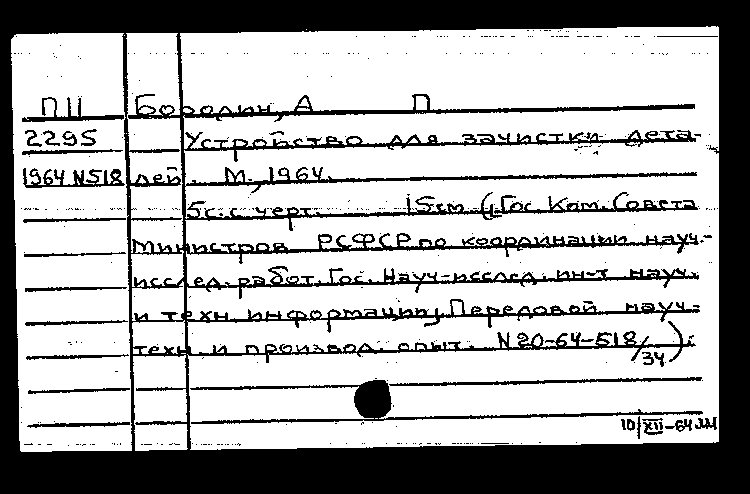 П11 Бородин, А П.
2295 Устройство для зачистки дета-
1964 N518 лей. М., 1964.
5с. с черт. 15см (Гос. Ком. Совета
Министров РСФСР по координации науч.-
исслед. работ. Гос. Науч-исслед. ин-т науч.
и техн. информации. Передовой науч.-
техн. и производ. опыт. N20-64-518/34).
10/XII-64